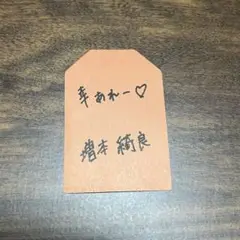 幸あれー♡
増本 綺良